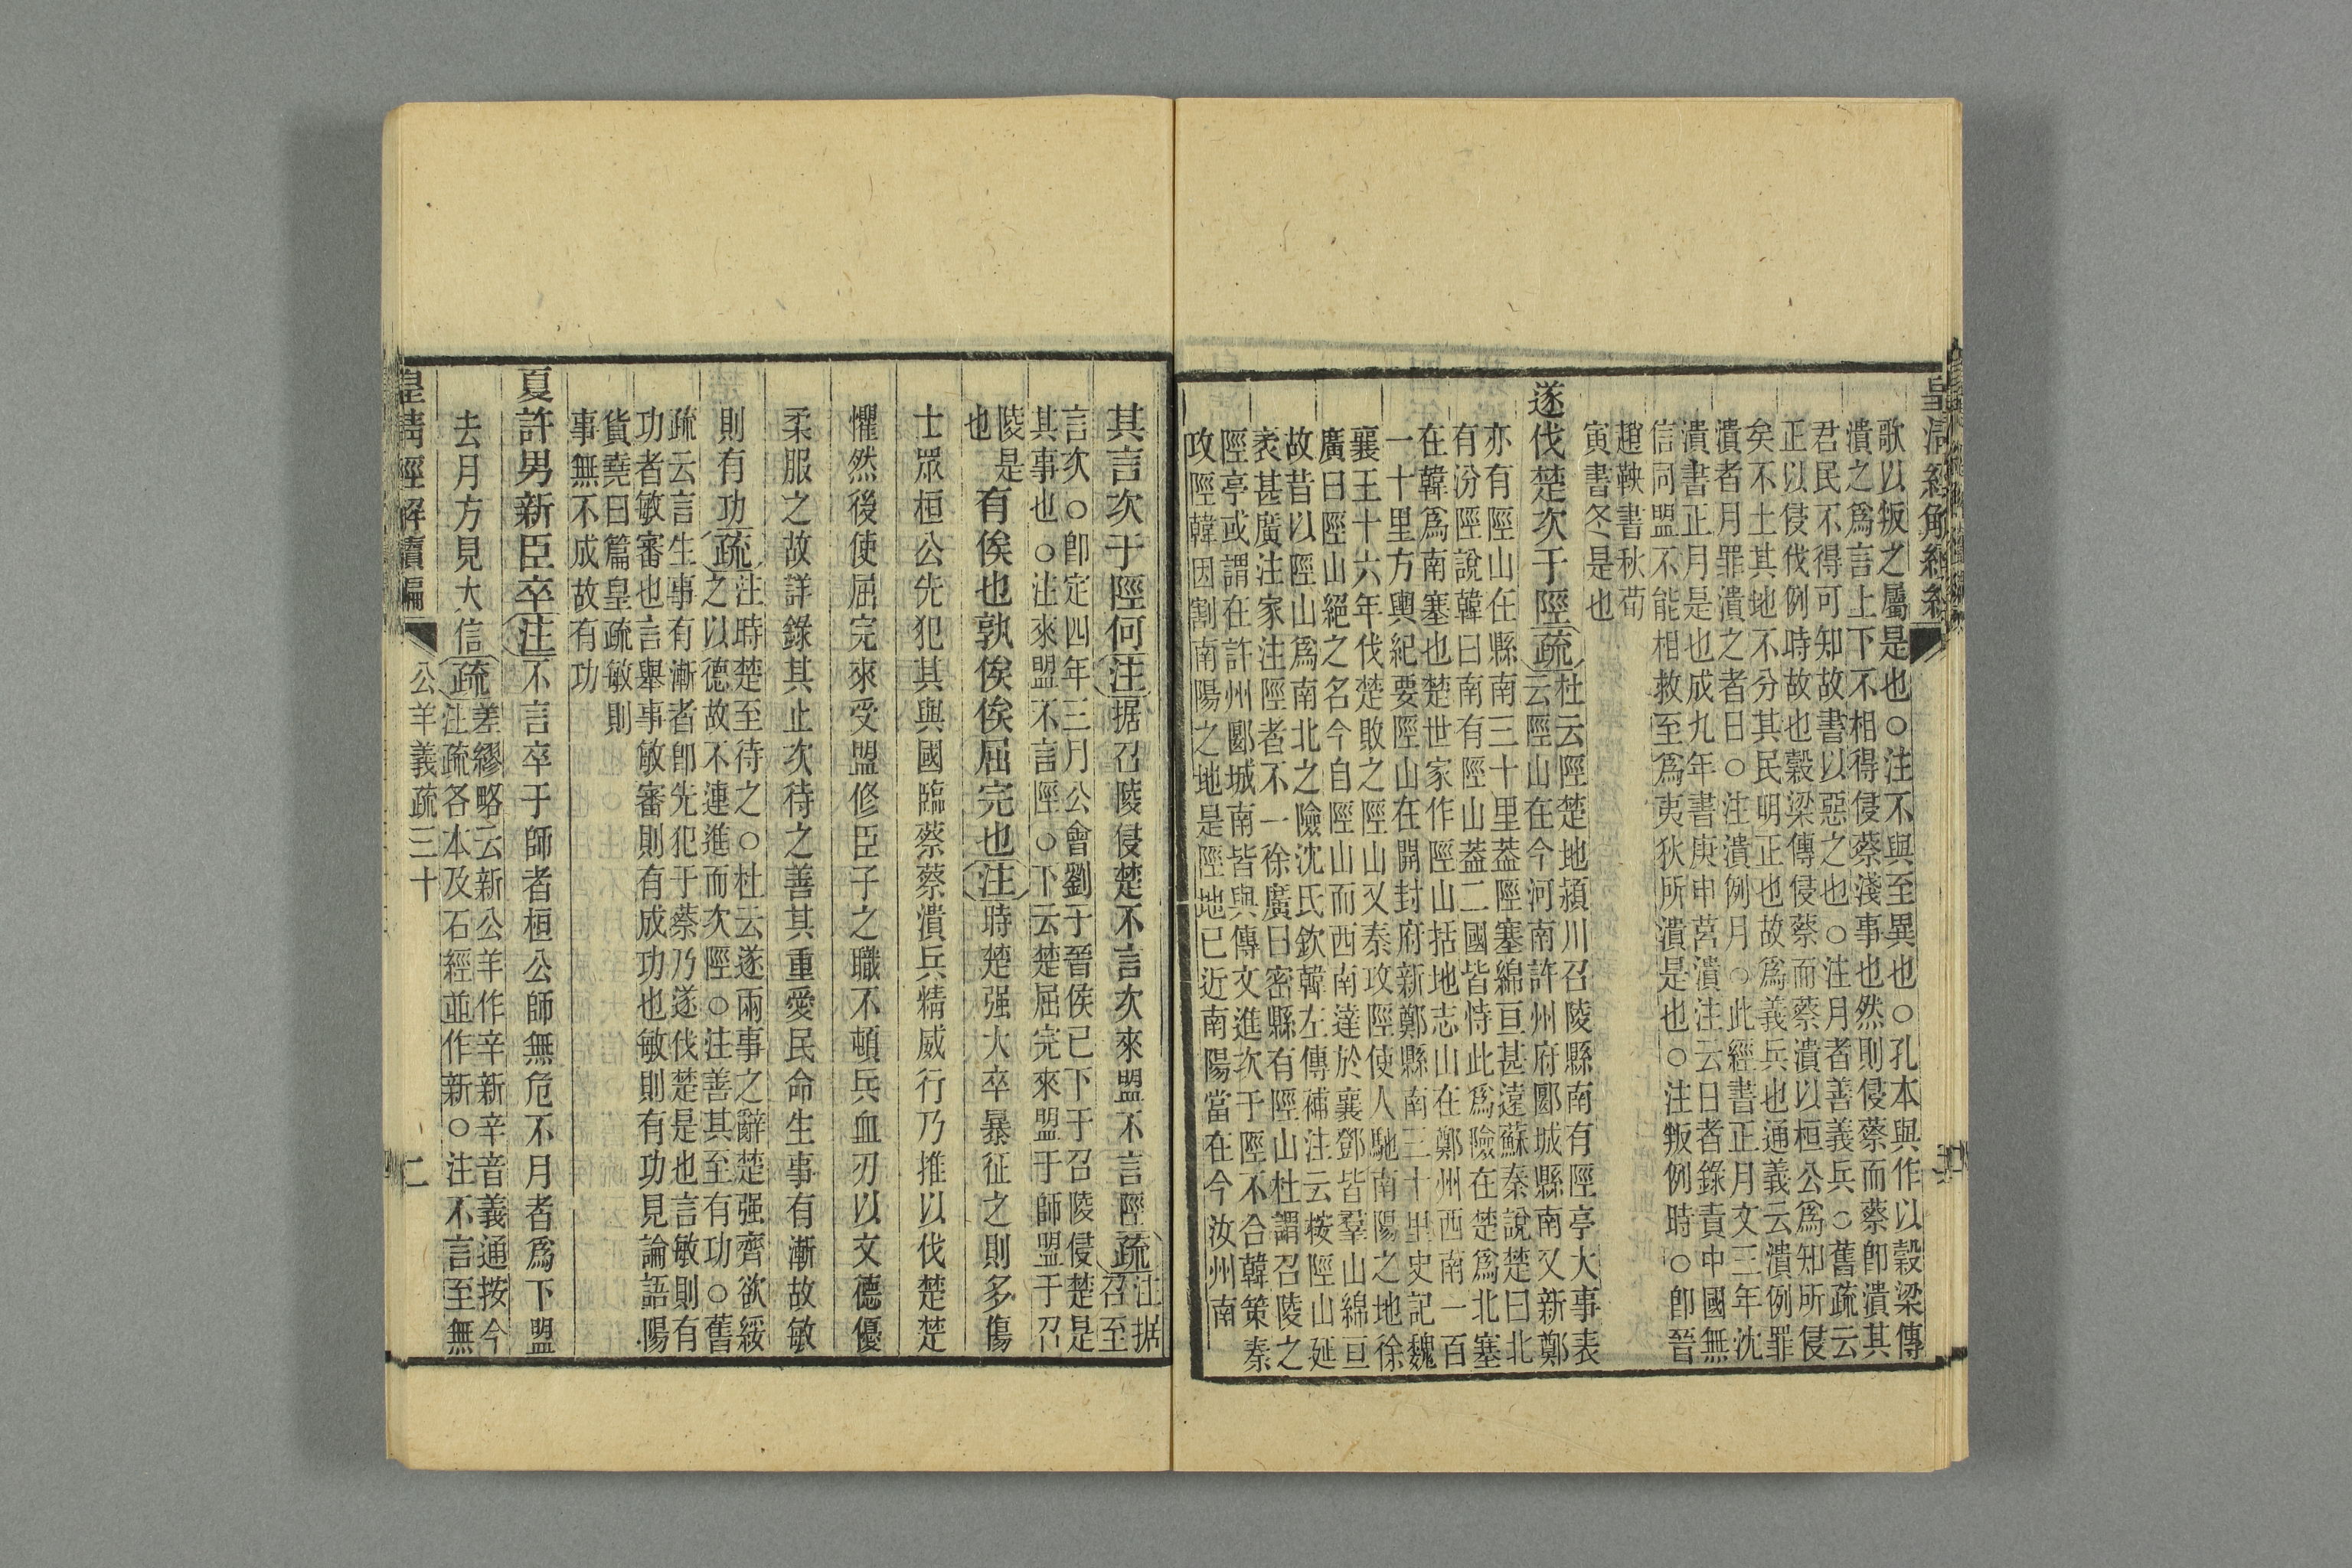 歌以叛之屬是也○注不與至異也○孔本與作以穀梁傳
潰之爲言上下不相得侵蔡淺事也然則侵蔡而蔡卽潰其
君民不得可知故書以惡之也○注月者善義兵○舊疏云
正以侵伐例時故也穀梁傳侵蔡而蔡潰以桓公爲知所侵
矣不土其地不分其民明正也故爲義兵也通義云潰例罪
潰者月罪潰之者日○注潰例月○此經書正月文三年沈
潰書正月是也成九年書庚申莒潰注云日者錄責中國無
信同盟不能相救至爲夷狄所潰是也○注叛例時○卽晉
趙鞅書秋荀
寅書冬是也
遂伐楚次于陘疏
杜云陘楚地潁川召陵縣南有陘亭大事表
云陘山在今河南許州府郾城縣南又新鄭
亦有陘山任縣南三十里葢陘塞綿亘甚遠蘇秦說楚曰北
有汾陘說韓曰南有陘山葢二國皆恃此爲險在楚爲北塞
在韓爲南塞也楚世家作陘山括地志山在鄭州西南一百
一十里方輿紀要陘山在開封府新鄭縣南三十里史記魏
襄王十六年伐楚敗之陘山又秦攻陘使人馳南陽之地徐
廣曰陘山絕之名今自陘山而西南達於襄鄧皆羣山綿亘
故昔以陘山爲南北之險沈氏欽韓左傳補注云按陘山延
袤甚廣注家注陘者不一徐廣曰密縣有陘山杜謂召陵之
陘亭或謂在許州郾城南皆與傳文進次于陘不合韓策秦
攻陘韓因割南陽之地是陘地已近南陽當在今汝州南
其言次于陘何注据召陵侵楚不言次來盟不言陘疏
注据
召至
言次○卽定四年三月公會劉子晉侯已下于召陵侵楚是
其事也○注來盟不言陘○下云楚屈完來盟于師盟于召
陵是
也
有俟也孰俟俟屈完也注時楚强大卒暴征之則多傷
士眾桓公先犯其與國臨蔡蔡潰兵精威行乃推以伐楚楚
懼然後使屈完來受盟修臣子之職不頓兵血刃以文德優
柔服之故詳錄其止次待之善其重愛民命生事有漸故敏
則有功疏
注時楚至待之○杜云遂兩事之辭楚强齊欲綏
之以德故不連進而次陘○注善其至有功○舊
疏云言生事有漸者卽先犯于蔡乃遂伐楚是也言敏則有
功者敏審也言舉事敏審則有成功也敏則有功見論語陽
貨堯曰篇皇疏敏則
事無不成故有功
夏許男新臣卒注不言卒于師者桓公師無危不月者爲下盟
去月方見大信疏
差繆略云新公羊作辛新辛音義通按今
注疏各本及石經並作新○注不言至無
皇淸經解續編
公羊義疏三十
二